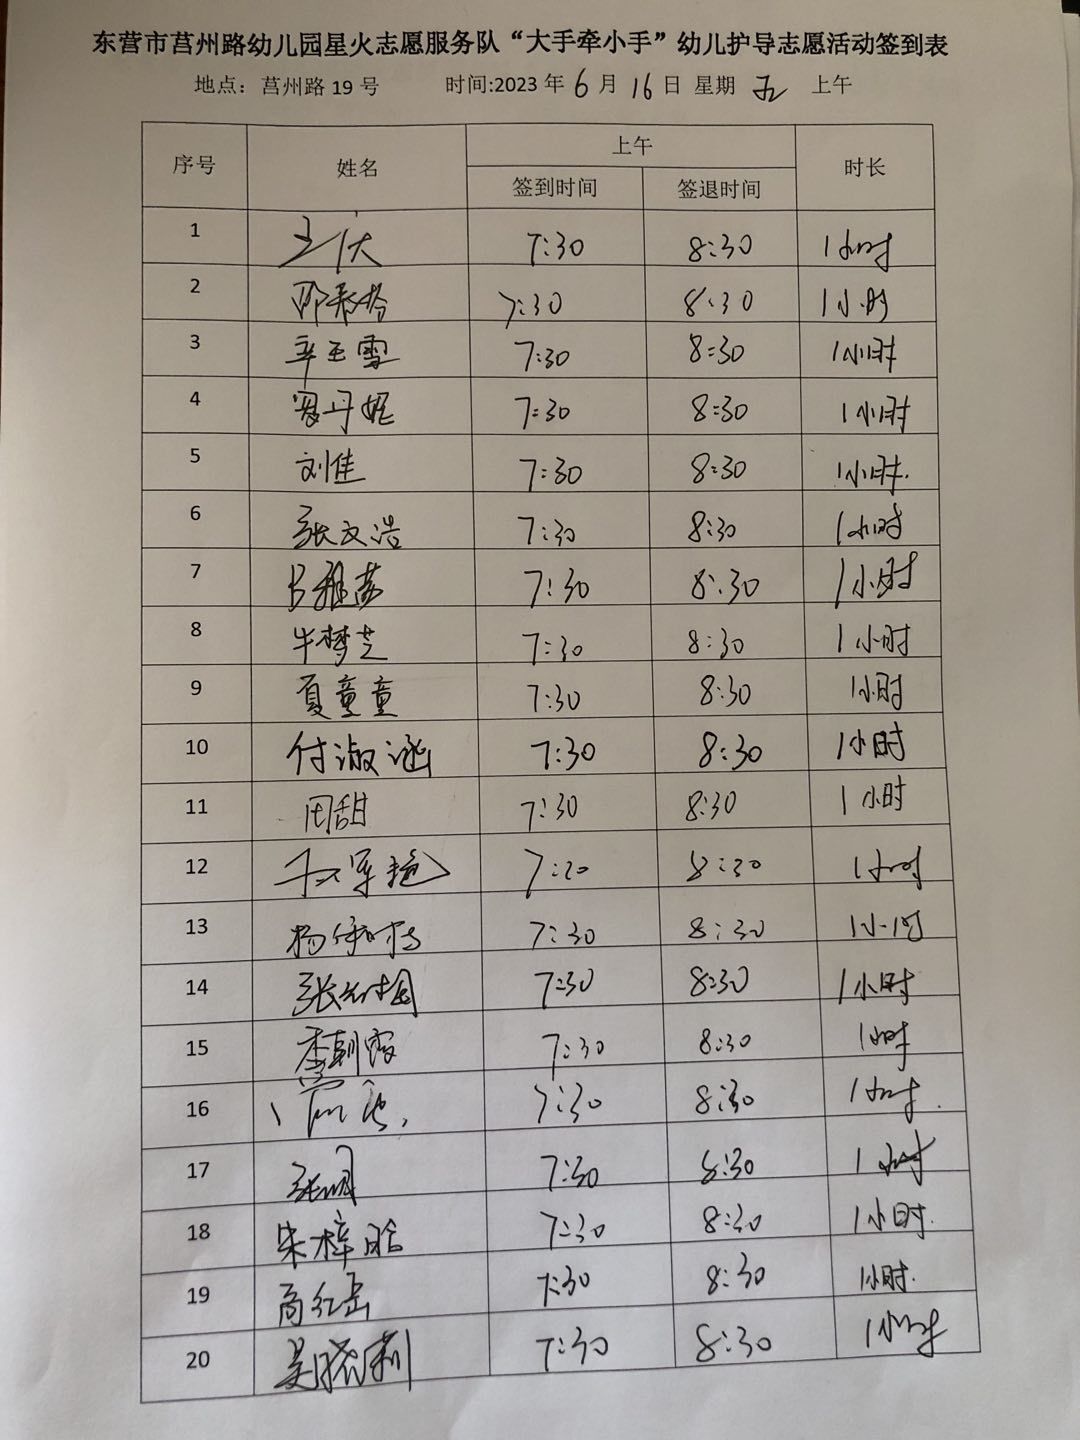 东营市莒州路幼儿园星火志愿服务队“大手牵小手”幼儿护导志愿活动签到表
地点：莒州路 19 号 时间:2023 年 6 月 16 日 星期 五 上午
序号 姓名 上午 时长
签到时间 签退时间
1 7:30 8:30 1小时
2 7:30 8:30 1小时
3 辛玉雪 7:30 8:30 1小时
4 7:30 8:30 1小时
5 刘佳 7:30 8:30 1小时.
6 张文浩 7:30 8:30 1小时
7 7:30 8:30 1小时
8 牛梦芝 7:30 8:30 1小时
9 夏童童 7:30 8:30 1小时
10 付淑涵 7:30 8:30 1小时
11 田甜 7:30 8:30 1小时
12 8:30 1小时
13 7:30 8:30 1小时
14 7:30 8:30 1小时
15 李朝霞 7:30 8:30 1小时
16 7:30 8:30 1小时.
17 7:30 8:30 1小时
18 宋梓晗 7:30 8:30 1小时.
19 商红岳 7:30 8:30 1小时.
20 吴晓莉 7:30 8:30 1小时